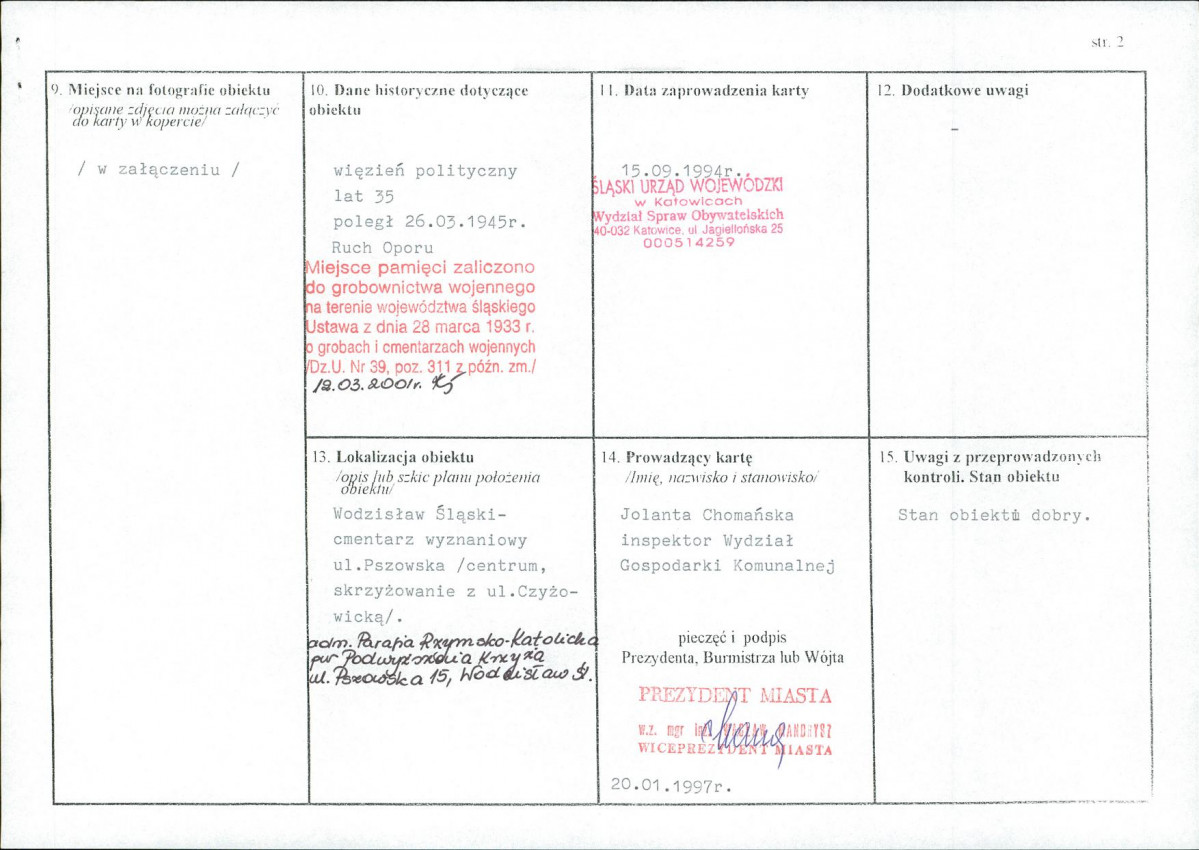 str. 2
9. Miejsce na fotografie obiektu
/opisane zdjęcia można załączyć
do karty w kopercie/
/ w załączeniu /
10. Dane historyczne dotyczące
obiektu
więzień polityczny
lat 35
poległ 26.03.1945r.
Ruch Oporu
Miejsce pamięci zaliczono
do grobownictwa wojennego
na terenie województwa śląskiego
Ustawa z dnia 28 marca 1933 r.
o grobach i cmentarzach wojennych
/Dz.U. Nr 39, poz. 311 z późn. zm./
12.03.2001r.
11. Data zaprowadzenia karty
15.09.1994r..
ŚLĄSKI URZĄD WOJEWÓDZKI
w Katowicach
Wydział Spraw Obywatelskich
40-032 Katowice, ul Jagiellońska 25
000514259
12. Dodatkowe uwagi
–
13. Lokalizacja obiektu
/opis lub szkic planu położenia
obiektu/
Wodzisław Śląski-
cmentarz wyznaniowy
ul.Pszowska /centrum,
skrzyżowanie z ul.Czyżo-
wicką/.
adm. Parafia Rzymsko-Katolicka
pw Podwyższenia Krzyża
ul. Pszowska 15, Wodzisław Śl.
14. Prowadzący kartę
/Imię, nazwisko i stanowisko/
Jolanta Chomańska
inspektor Wydział
Gospodarki Komunalnej
pieczęć i podpis
Prezydenta, Burmistrza lub Wójta
PREZYDENT MIASTA
w.z. mgr inż. MANDRYSZ
WICEPREZYDENT MIASTA
20.01.1997r.
15. Uwagi z przeprowadzonych
kontroli. Stan obiektu
Stan obiektu dobry.